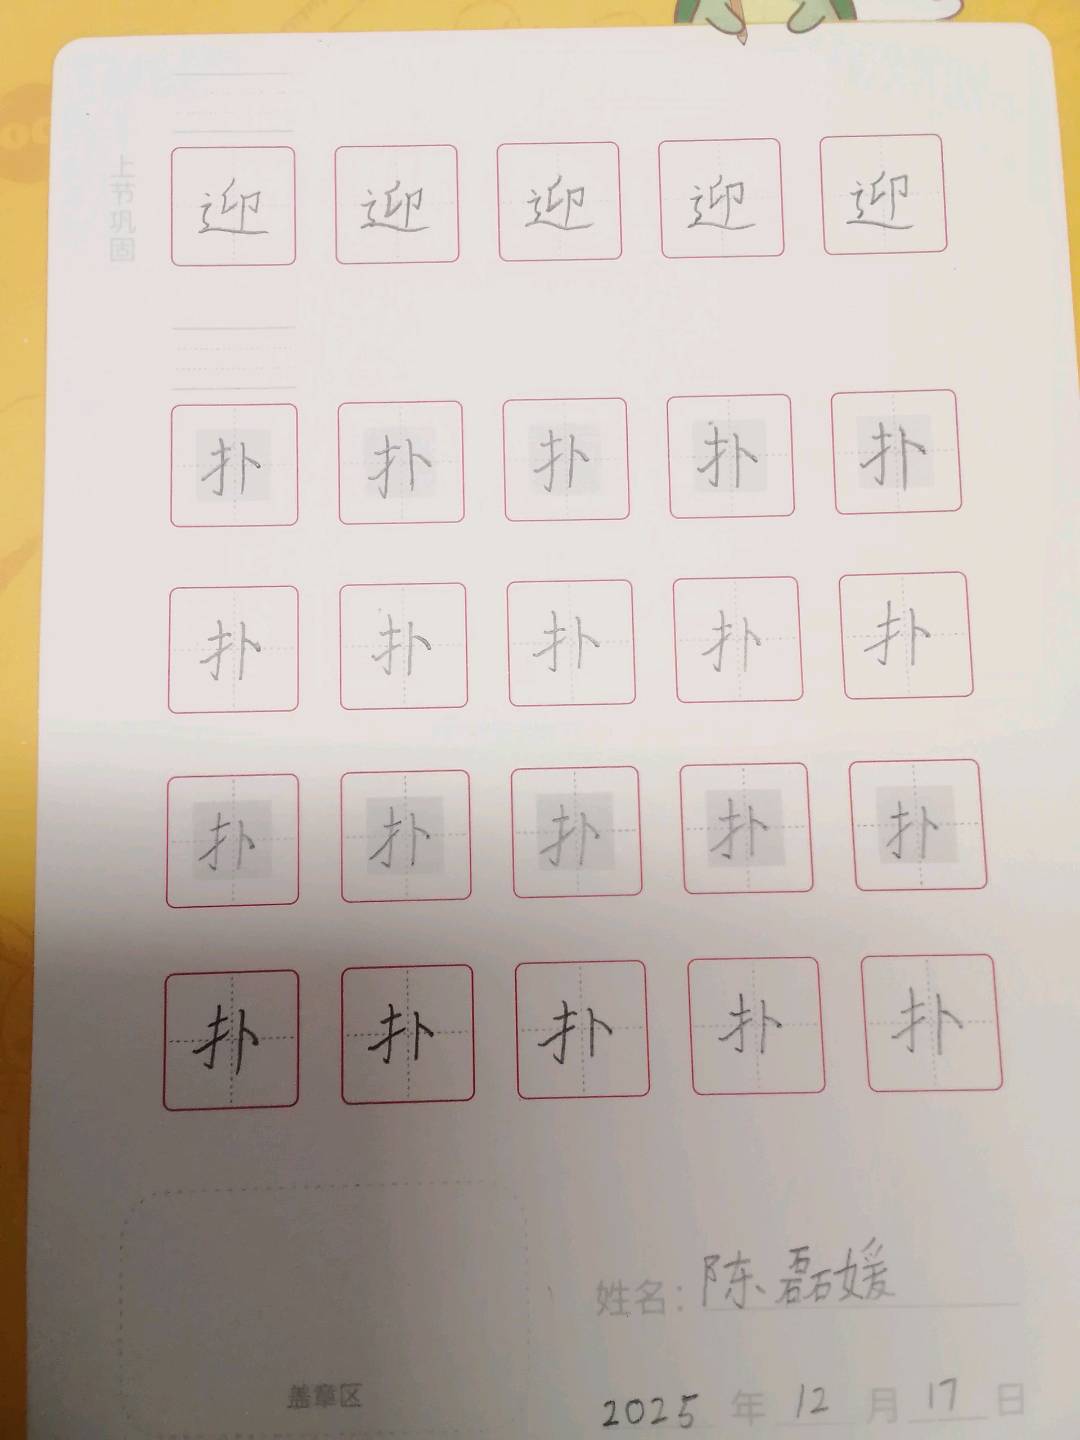 上节巩固
迎 迎 迎 迎 迎
扑 扑 扑 扑 扑
扑 扑 扑 扑 扑
扑 扑 扑 扑 扑
扑 扑 扑 扑 扑
姓名：陈磊媛
盖章区
2025 年 12 月 17 日